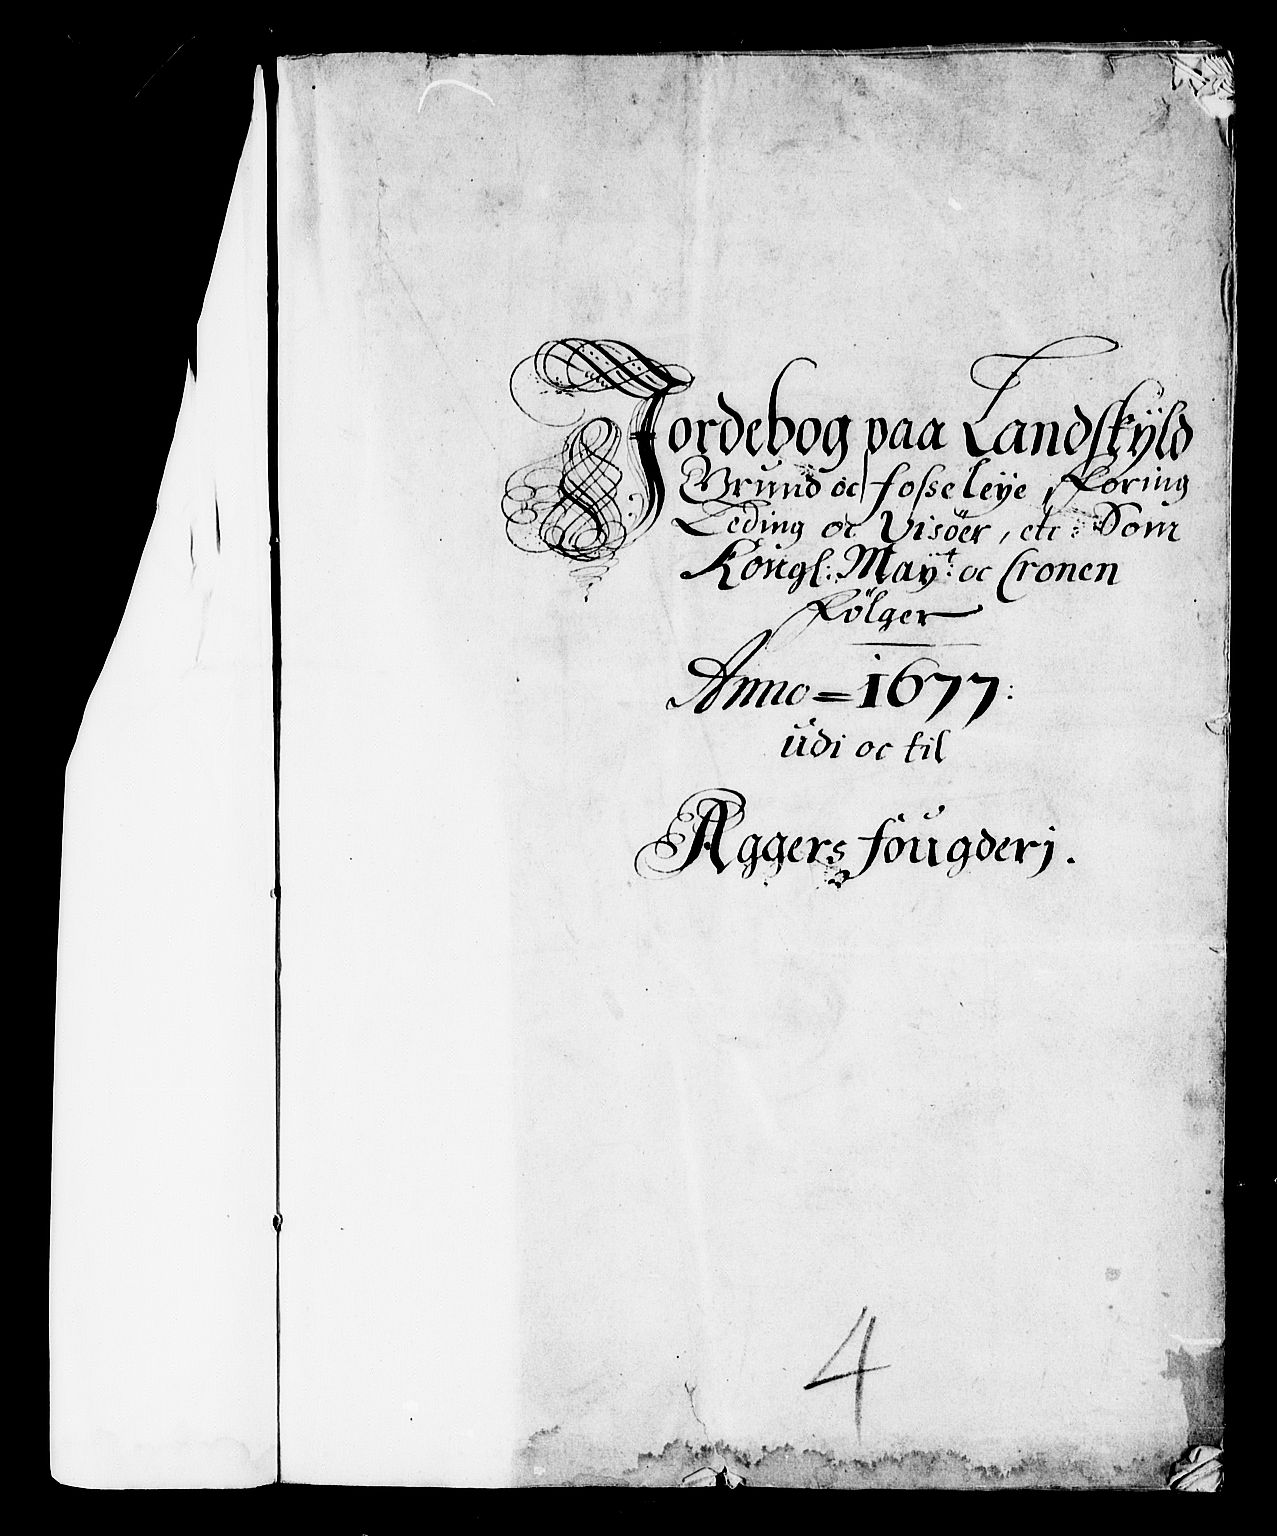 Jordebog paa Landskÿld
Grund oc fosseleÿe, Foring
Leding oc Visöer, etc: Som
Kongl: Maÿt: oc Cronen
Fölger
Anno = 1677:
udi oc til
Aggers fougderj.
4